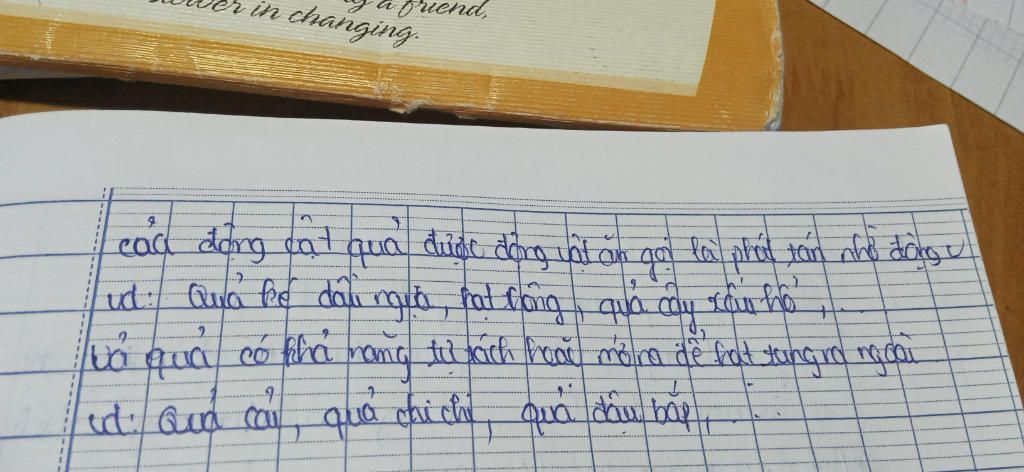 g a friend,
in changing.
của động vật quả được động vật ăn gọi là phát tán nhờ động v
vd: Quả ké đầu ngựa, hạt thông, quả cây xấu hổ, ...
vỏ quả có khả năng tự tách hoặc mở ra để hạt tung ra ngoài
vd: Quả cải, quả chi chi, quả đậu bắp, ...